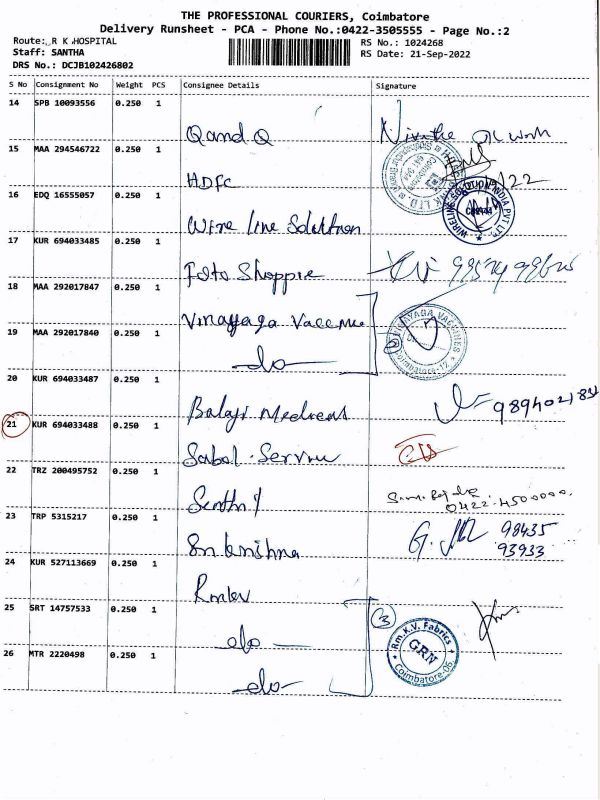 THE PROFESSIONAL COURIERS, Coimbatore
Delivery Runsheet - PCA - Phone No.:0422-3505555 - Page No.:2
Route: R K HOSPITAL
RS No.: 1024268
Staff: SANTHA
RS Date: 21-Sep-2022
DRS No.: DCJB102426802
S No Consignment No Weight PCS Consignee Details Signature
14 SPB 10093556 0.250 1
Q and Q
15 MAA 294546722 0.250 1
HDFC
16 EDQ 16555057 0.250 1
Wire line Solution
WIRELINE SOLUTION INDIA PVT LTD
17 KUR 694033485 0.250 1
Foto Shoppie
18 MAA 292017847 0.250 1
Vinayaga Vaccine
19 MAA 292017840 0.250 1
do
2
VINAYAGA VACCINES
Coimbatore-12
20 KUR 694033487 0.250 1
Balaji Medical
21 KUR 694033488 0.250 1
22 TRZ 200495752 0.250 1
Senthil
0422-4500000
23 TRP 5315217 0.250 1
Sri krishna
98435
93933
24 KUR 527113669 0.250 1
Rmkv
25 SRT 14757533 0.250 1
do
3
Rm.K.V. Fabrics
GRN
Coimbatore-05
26 MTR 2220498 0.250 1
do